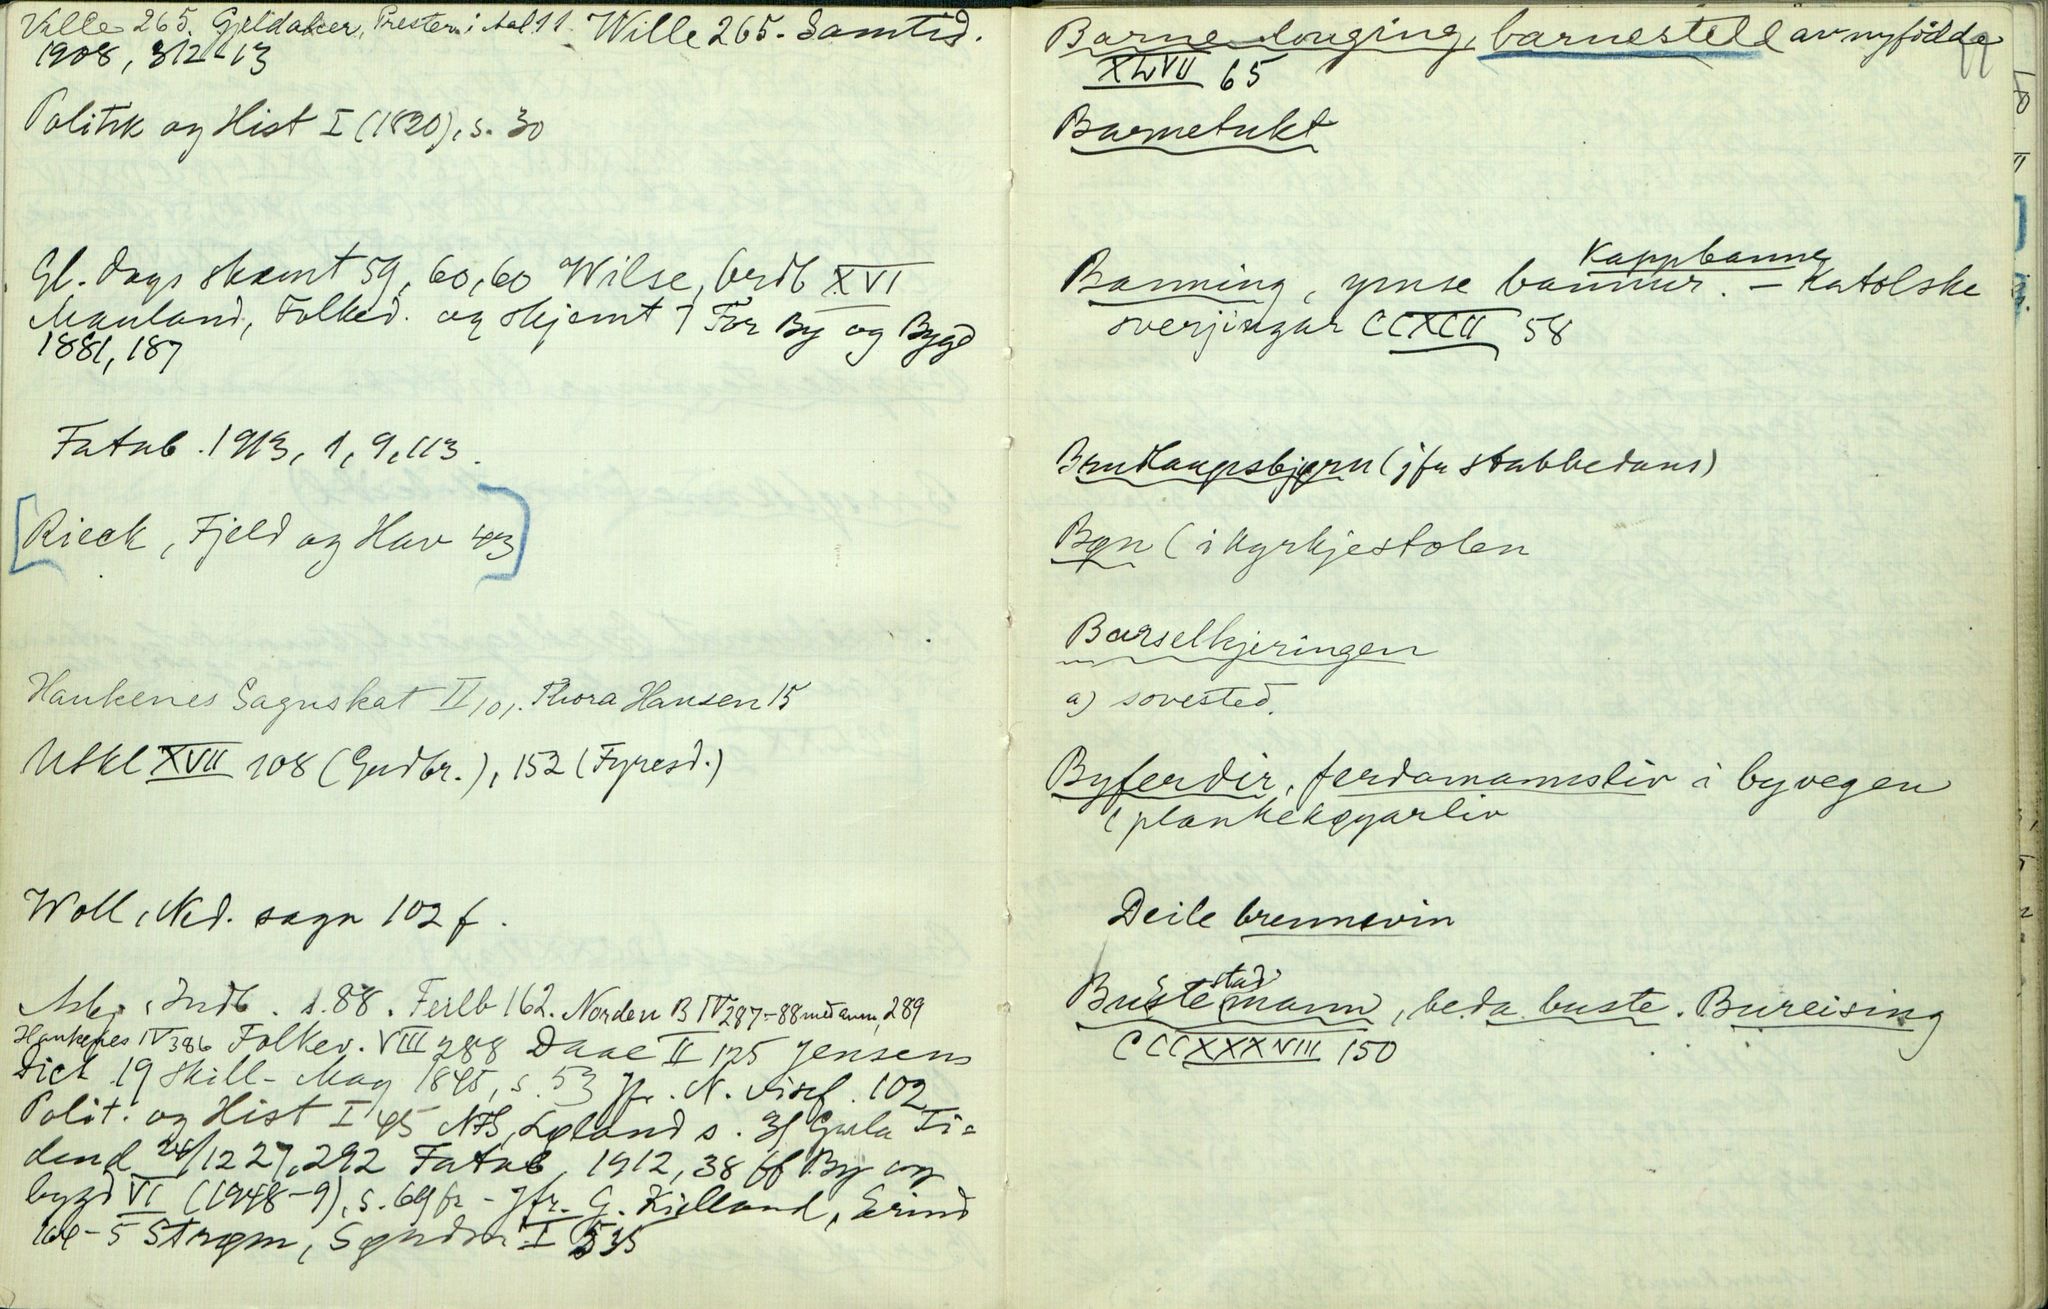 Wille 265. Gjeldaker, Presten i Aal 11 Wille 265. Samtid.
1908, 312-13
Politik og Hist I (1820), s. 30
Gl. dags skæmt 59, 60, 60 Wilse, brdb XVI
Mauland, Folked. og skjemt 7 For By og Bygd
1881, 187
Fatab. 1913, 1, 9, 113.
[Rieck, Fjeld og Hav 43]
Haukenes Sagnskat II 101. Thora Hansen 15
NSkl XVII 108 (Gudbr.), 152 (Fyresd.)
Woll, Ned. sagn 102 f.
Asbj. Indb. s. 88. Feilb 162. Norden B IV 287-88 med anm, 289
Haukenes IV 386 Folkev. VIII 288 Daae II 125 Jensens
Dict 19 Skill-Mag 1845, s. 53 Jfr. N. viser 102
Polit. og Hist I 45 NFS, Løland s. 31 Gula Ti=
dend 24/12 27, 292 Fatab. 1912, 38 ff By og
bygd VI (1948-9), s. 69 fr - Jfr. G. Kielland, Erind
104-5 Strøm, Søndm I 535
Barne longing, barnestell av nyfödde
XLVII 65
Barnetukt
Kappbanning
Banning, ymse bannur. - Katolske
sverjingar CCXCII 58
Brudlaupsbjørn (jfr stabbedans)
Bøn (i kyrkjestolen
Barselkjeringen
a) sovested.
Byferdir, ferdamannsliv i byvegen
(plankekøyarliv
Deile brennevin
stad
Bustemann, beda buste. Bureising
CCCXXXVIII 150